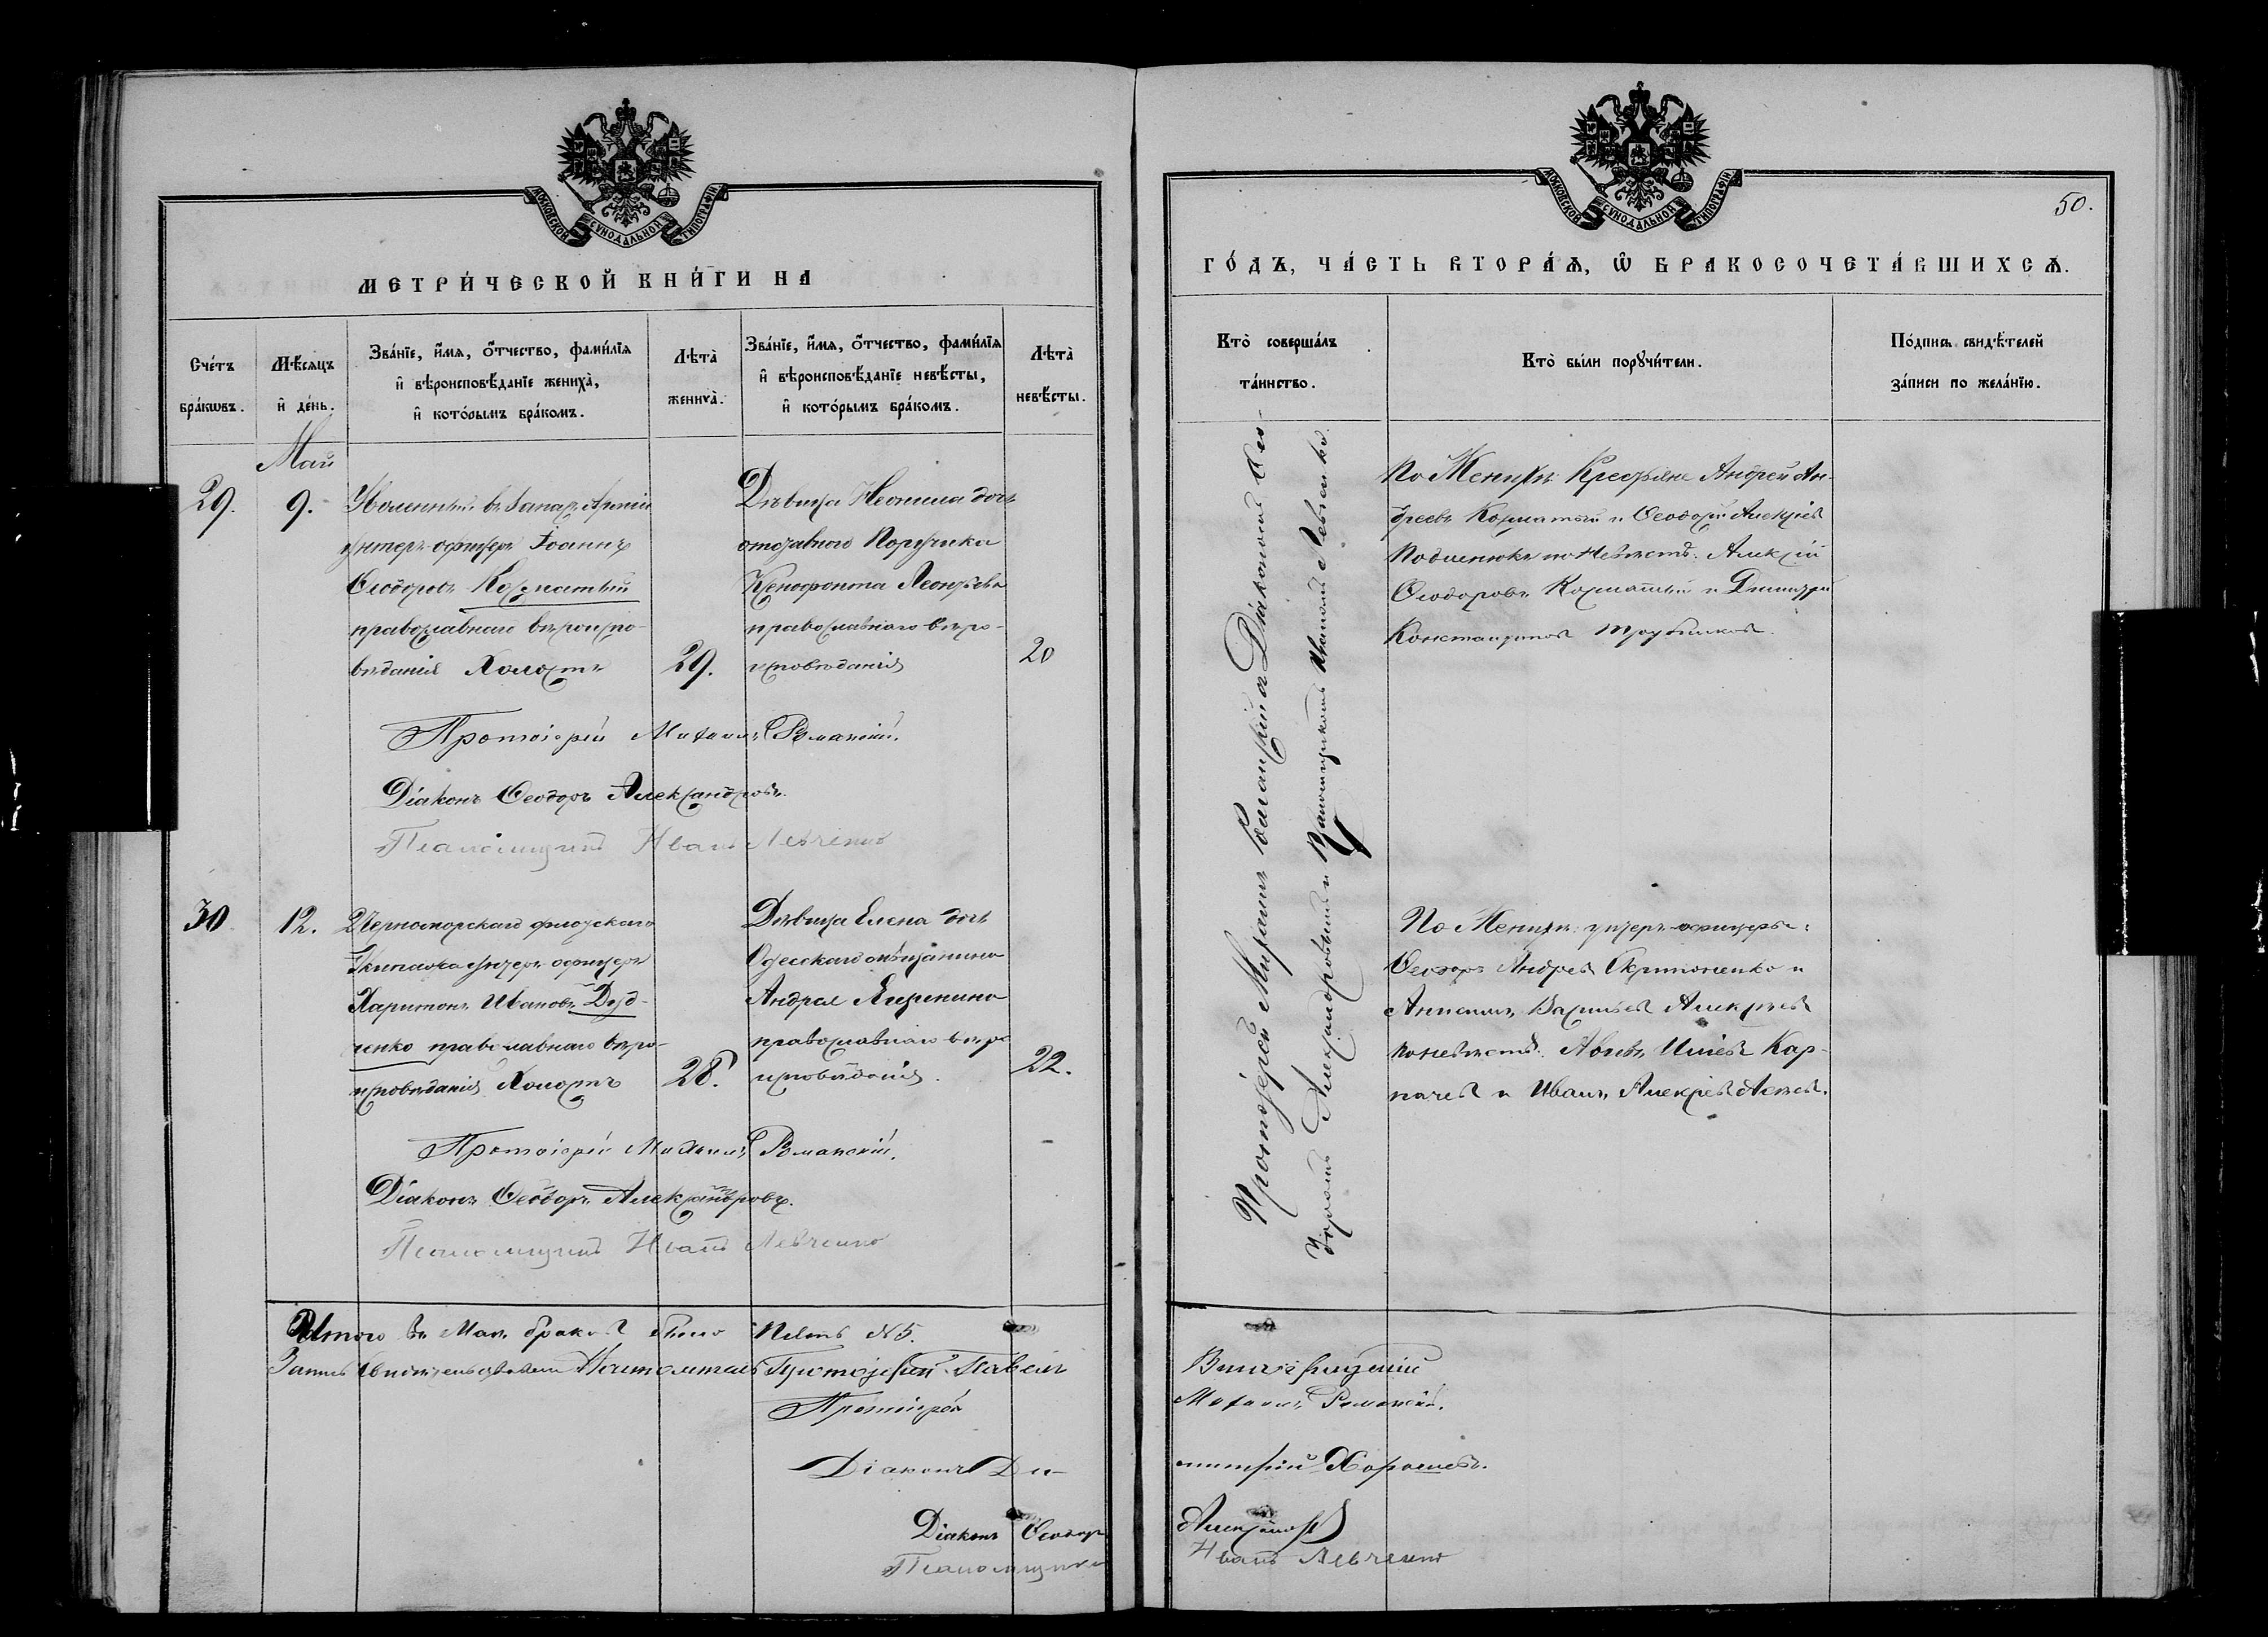 МОСКОВСКОЙ СѴНОДАЛЬНОЙ ТИПОГРАФІИ
МЕТРИ́ЧЕСКОЙ КНИ́ГИ НА
Сче́тъ бра́кωвъ.
Мѣ́сяцъ и҆ де́нь.
Зва́нїе, и҆́мѧ, ѻ҆́тчество, фами́лїѧ
и҆ вѣроисповѣ́данїе жениха̀,
и҆ кото́рымъ бра́комъ.
Лѣта̀ жениха̀.
Зва́нїе, и҆́мѧ, ѻ҆́тчество, фами́лїѧ
и҆ вѣроисповѣ́данїе невѣ́сты,
и҆ кото́рымъ бра́комъ.
Лѣта̀ невѣ́сты.
Май
29.
9.
Уволенный въ Запас Арміи
унтеръ-офицеръ Іоаннъ
Ѳеодоровъ Косматый
православнаго вѣроиспо-
вѣданія Холостъ
29.
Дѣвица Неонила дочь
отставного Поручика
Ксенофонта Леонтьева
православнаго вѣро-
исповѣданія
20
Протоіерей Михаилъ Романскій.
Діаконъ Ѳеодоръ Александровъ.
Псаломщикъ Иванъ Левченко
30
12.
Черноморскаго флотскаго
Экипажа унтеръ офицеръ
Харитонъ Ивановъ Дуд-
ченко православнаго вѣро-
исповѣданія Холостъ
28.
Дѣвица Елена дочь
Одесскаго мѣщанина
Андрея
православнаго вѣро
исповѣданія.
22.
Протоіерей Михаилъ Романскій.
Діаконъ Ѳеодоръ Александровъ.
Псаломщикъ Иванъ Левченко
Итого въ Маѣ браковъ было
Протоіерей Павелъ
Протоіерей
Діаконъ Ди-
Діаконъ Ѳеодоръ
Псаломщикъ
МОСКОВСКОЙ СѴНОДАЛЬНОЙ ТИПОГРАФІИ
50.
ГО́ДЪ, ЧА́СТЬ ВТОРА́Ѧ, Ѡ҆ БРАКОСОЧЕТА́ВШИХСѦ.
Кто̀ соверша́лъ
та́инство.
Кто̀ бы́ли порꙋчи́тели.
По́дпись свидѣ́телей
за́писи по жела́нїю.
Протоіерей Михаилъ Романскій съ Діакономъ Ѳео-
доромъ Александровымъ и Псаломщикомъ Иваномъ Левченко.
По Женихѣ: Крестьяне Андрей Ан-
дреевъ Косматый и Ѳеодоръ Алексѣевъ
по Невѣстѣ: Алексѣй
Ѳеодоровъ Косматый и Димитрій
Константиновъ Трубниковъ.
По Женихѣ: унтеръ-офицеры:
Ѳеодоръ Андреевъ и
Василіевъ Алексѣевъ
по невѣстѣ: Кар-
и Иванъ Алексѣевъ
Михаилъ Романскій.
митрій Хорошевъ.
Александровъ
Иванъ Левченко